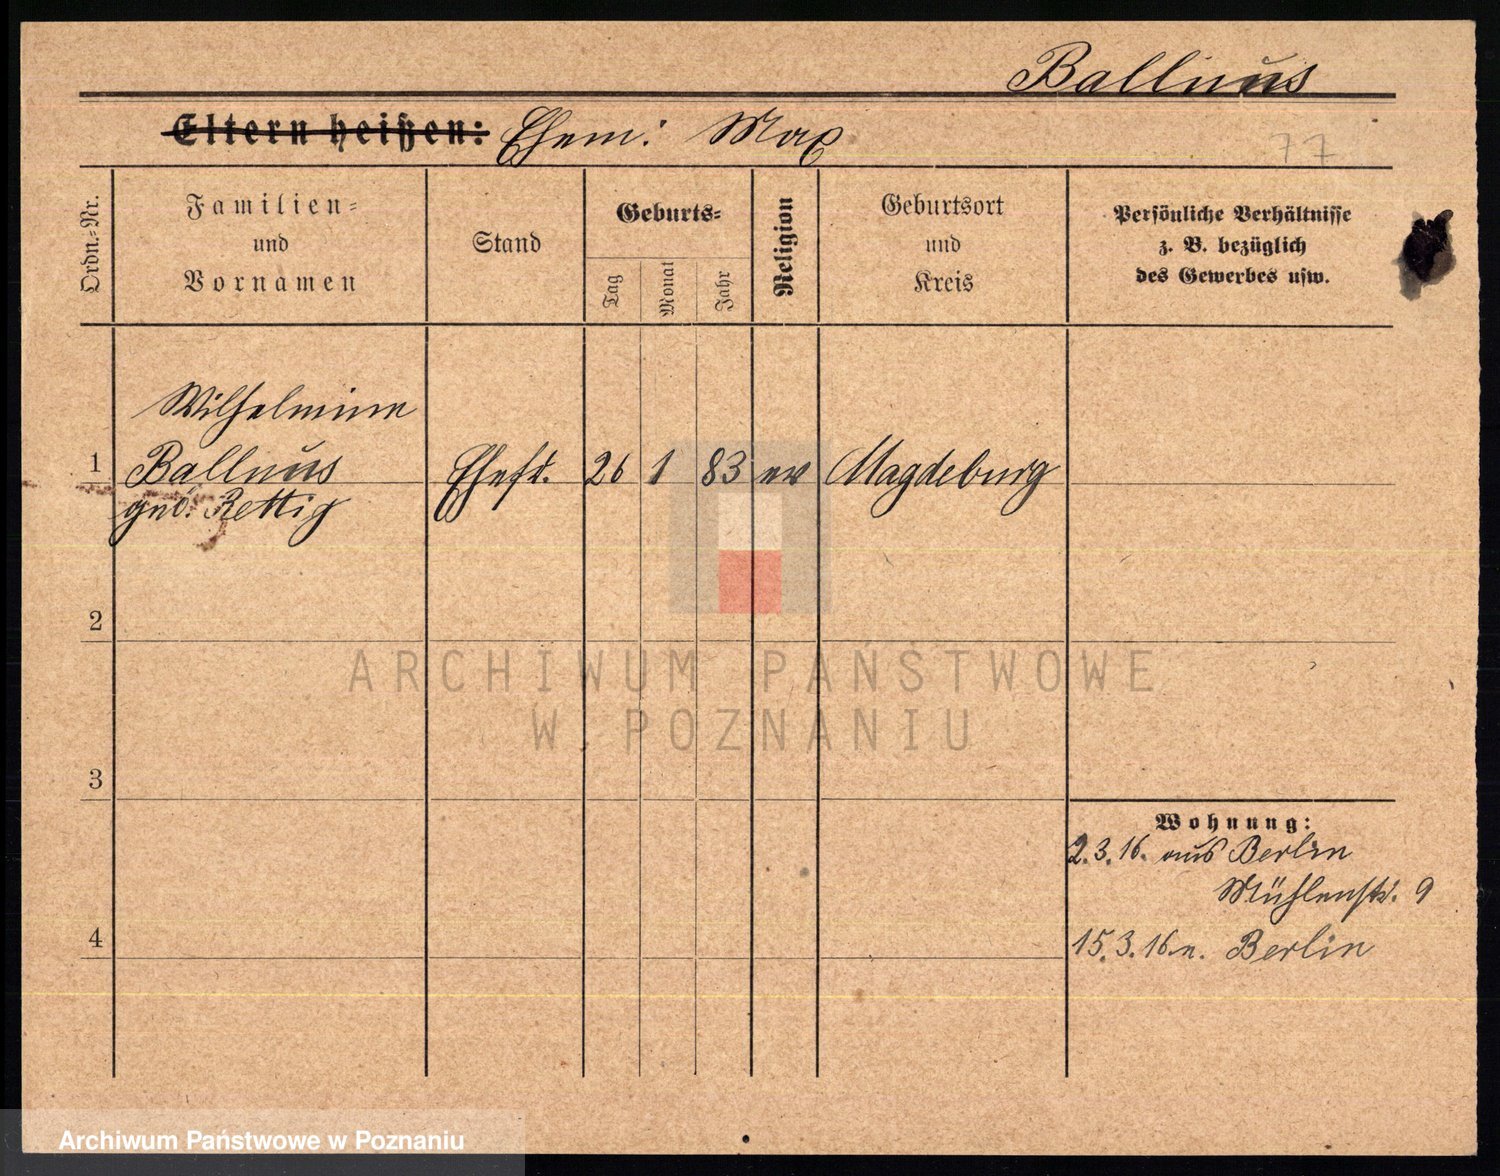 Ballnus
Eltern heißen: Ehem: Max
77
Ordn.=Nr.
Familien=
und
Vornamen
Stand
Geburts=
Tag
Monat
Jahr
Religion
Geburtsort
und
Kreis
Persönliche Verhältnisse
z. B. bezüglich
des Gewerbes usw.
Wilhelmine
1 Ballnus Ehefr. 26 1 83 ev Magdeburg
geb. Rettig
2
ARCHIWUM PAŃSTWOWE
W POZNANIU
3
Wohnung:
2.3.16. aus Berlin
Mühlenstr. 9
4 15.3.16 n. Berlin
Archiwum Państwowe w Poznaniu